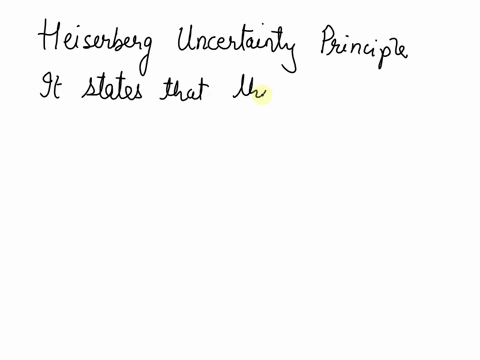 Heiserberg Uncertainty Principle
It states that th